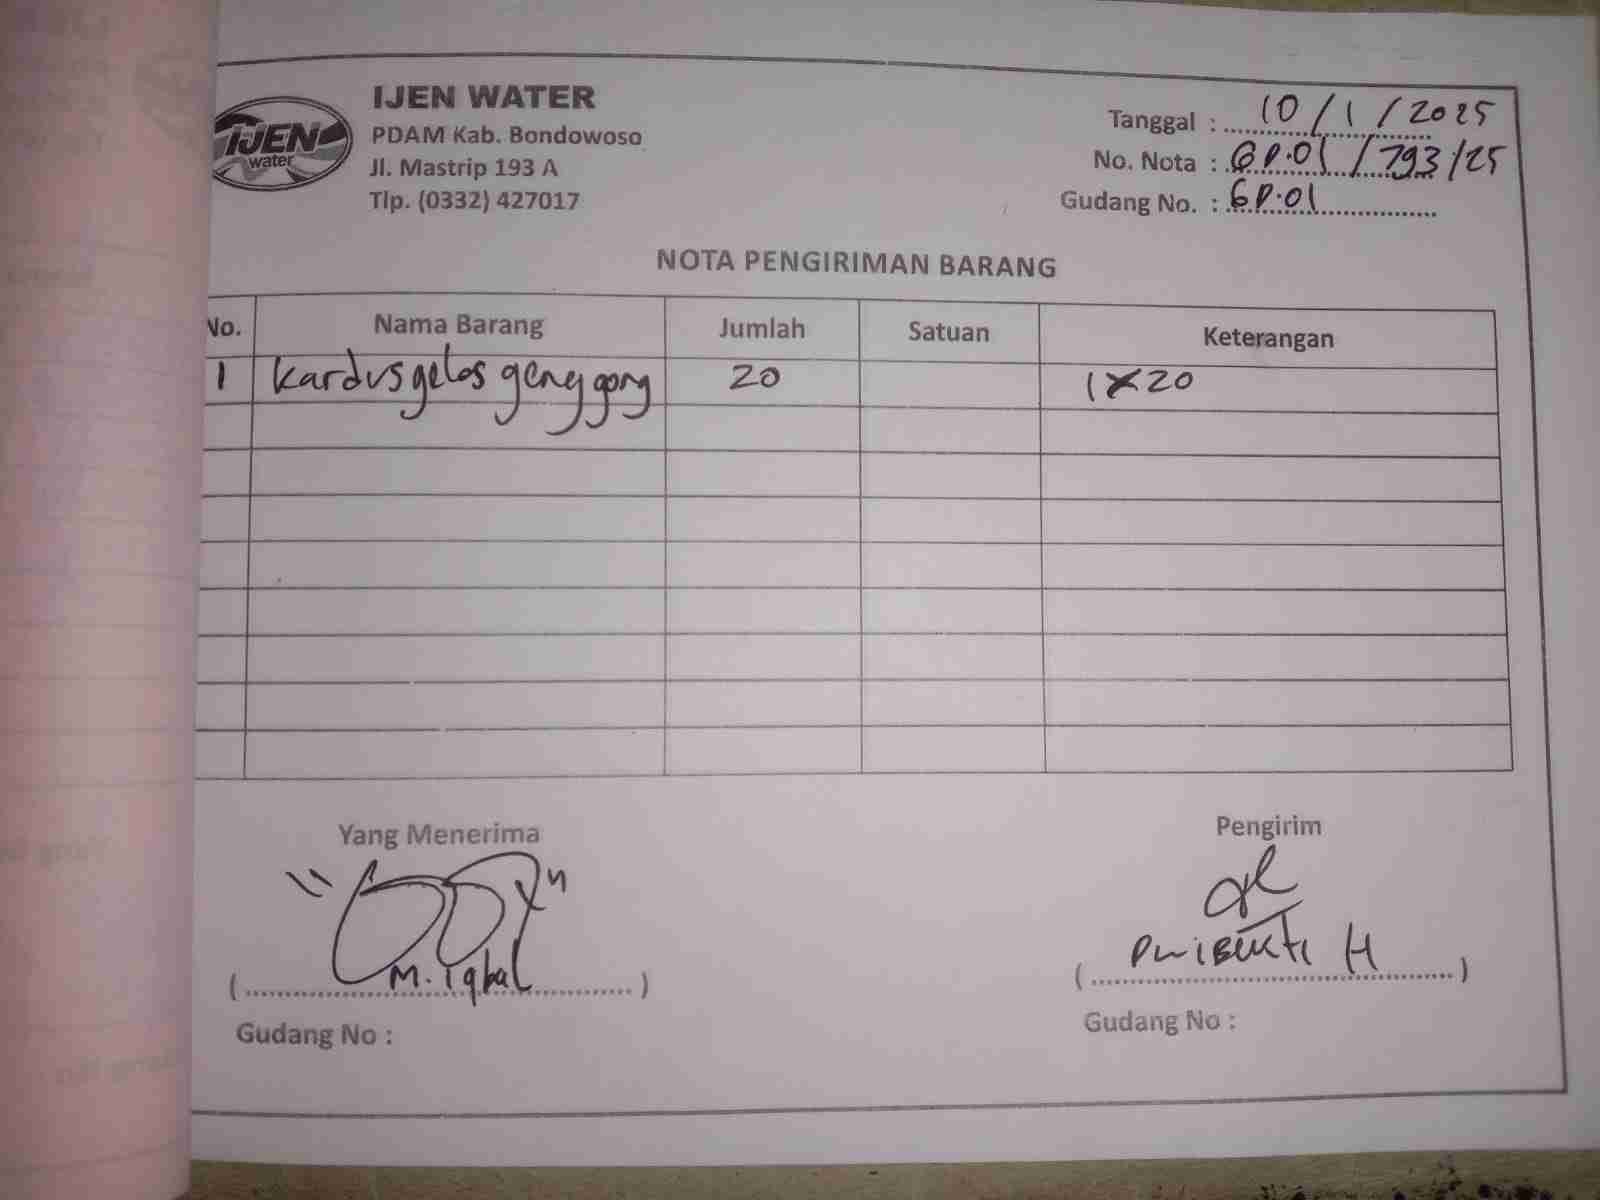 IJEN
water
IJEN WATER
PDAM Kab. Bondowoso
Jl. Mastrip 193 A
Tlp. (0332) 427017
Tanggal : 10/1/2025
No. Nota : GP.01/793/25
Gudang No. : GP.01
NOTA PENGIRIMAN BARANG
No. Nama Barang Jumlah Satuan Keterangan
1 Kardus gelas genggong 20 1x20
Yang Menerima Pengirim
(M. iqbal) (H)
Gudang No : Gudang No :